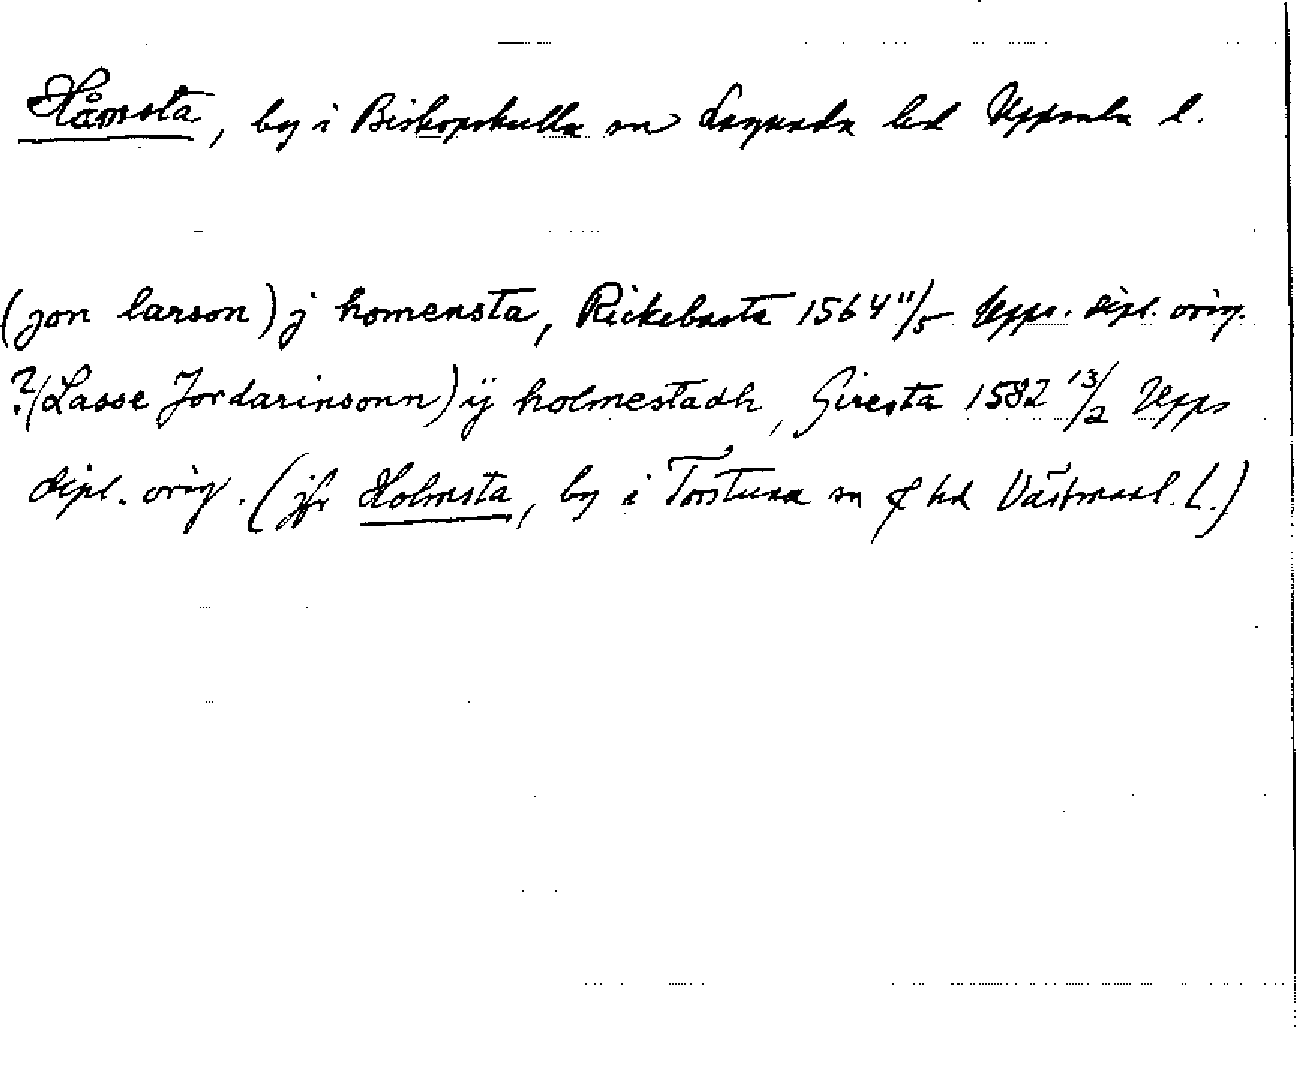 Håmsta, by i Biskopskulla sn Lagunda hd Uppsala l.
(jon larson) j homensta, Rickebasta 1564 11/5 Upps. dipl. orig.
?/(Lasse Jordarinsonn) ij holmestadh, Giresta 1582 13/2 Upps
dipl. orig. (jfr Holmsta, by i Torstuna sn o hd Västmanl. l.)